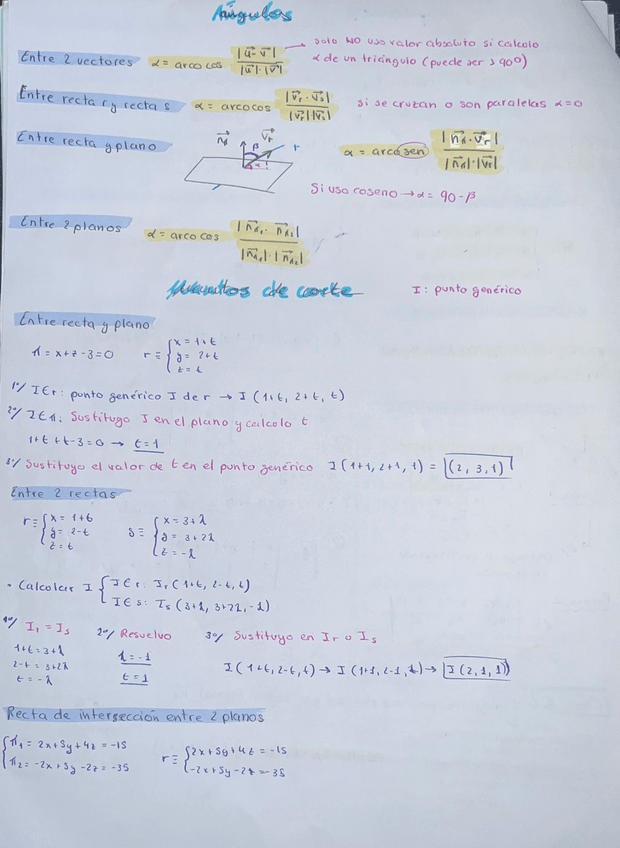 Ángulos
Entre 2 vectores α = arcocos |u⃗·v⃗| / |u⃗|·|v⃗| → solo NO uso valor absoluto si calculo
α de un triángulo (puede ser > 90º)
Entre recta r y recta s α = arcocos |v⃗r · v⃗s| / |v⃗r||v⃗s| si se cruzan o son paralelas α=0
Entre recta y plano n⃗π v⃗r r β α α = arcosen |n⃗π · v⃗r| / |n⃗π|·|v⃗r|
Si uso coseno → α = 90 - β
Entre 2 planos α = arcocos |n⃗π₁ · n⃗π₂| / |n⃗π₁|·|n⃗π₂|
Puntos de corte I: punto genérico
Entre recta y plano
π = x+z-3=0 r ≡ { x = 1+t
y = 2+t
z = t
1º/ I∈r: punto genérico I de r → I (1+t, 2+t, t)
2º/ I∈π: Sustituyo I en el plano y calculo t
1+t+t-3=0 → t=1
3º/ Sustituyo el valor de t en el punto genérico I (1+1, 2+1, 1) = (2, 3, 1)
Entre 2 rectas
r ≡ { x = 1+t s ≡ { x = 3+λ
y = 2-t y = 3+2λ
z = t z = -λ
• Calcular I { I∈r: Ir (1+t, 2-t, t)
I∈s: Is (3+λ, 3+2λ, -λ)
1º/ Ir = Is 2º/ Resuelvo 3º/ Sustituyo en Ir o Is
1+t=3+λ λ=-1
2-t=3+2λ t=1 I (1+t, 2-t, t) → I (1+1, 2-1, 1) → I (2, 1, 1)
t=-λ
Recta de intersección entre 2 planos
{ π₁ = 2x+5y+4z = -15 r ≡ { 2x+5y+4z = -15
π₂ = -2x+5y-2z = -35 -2x+5y-2z = -35